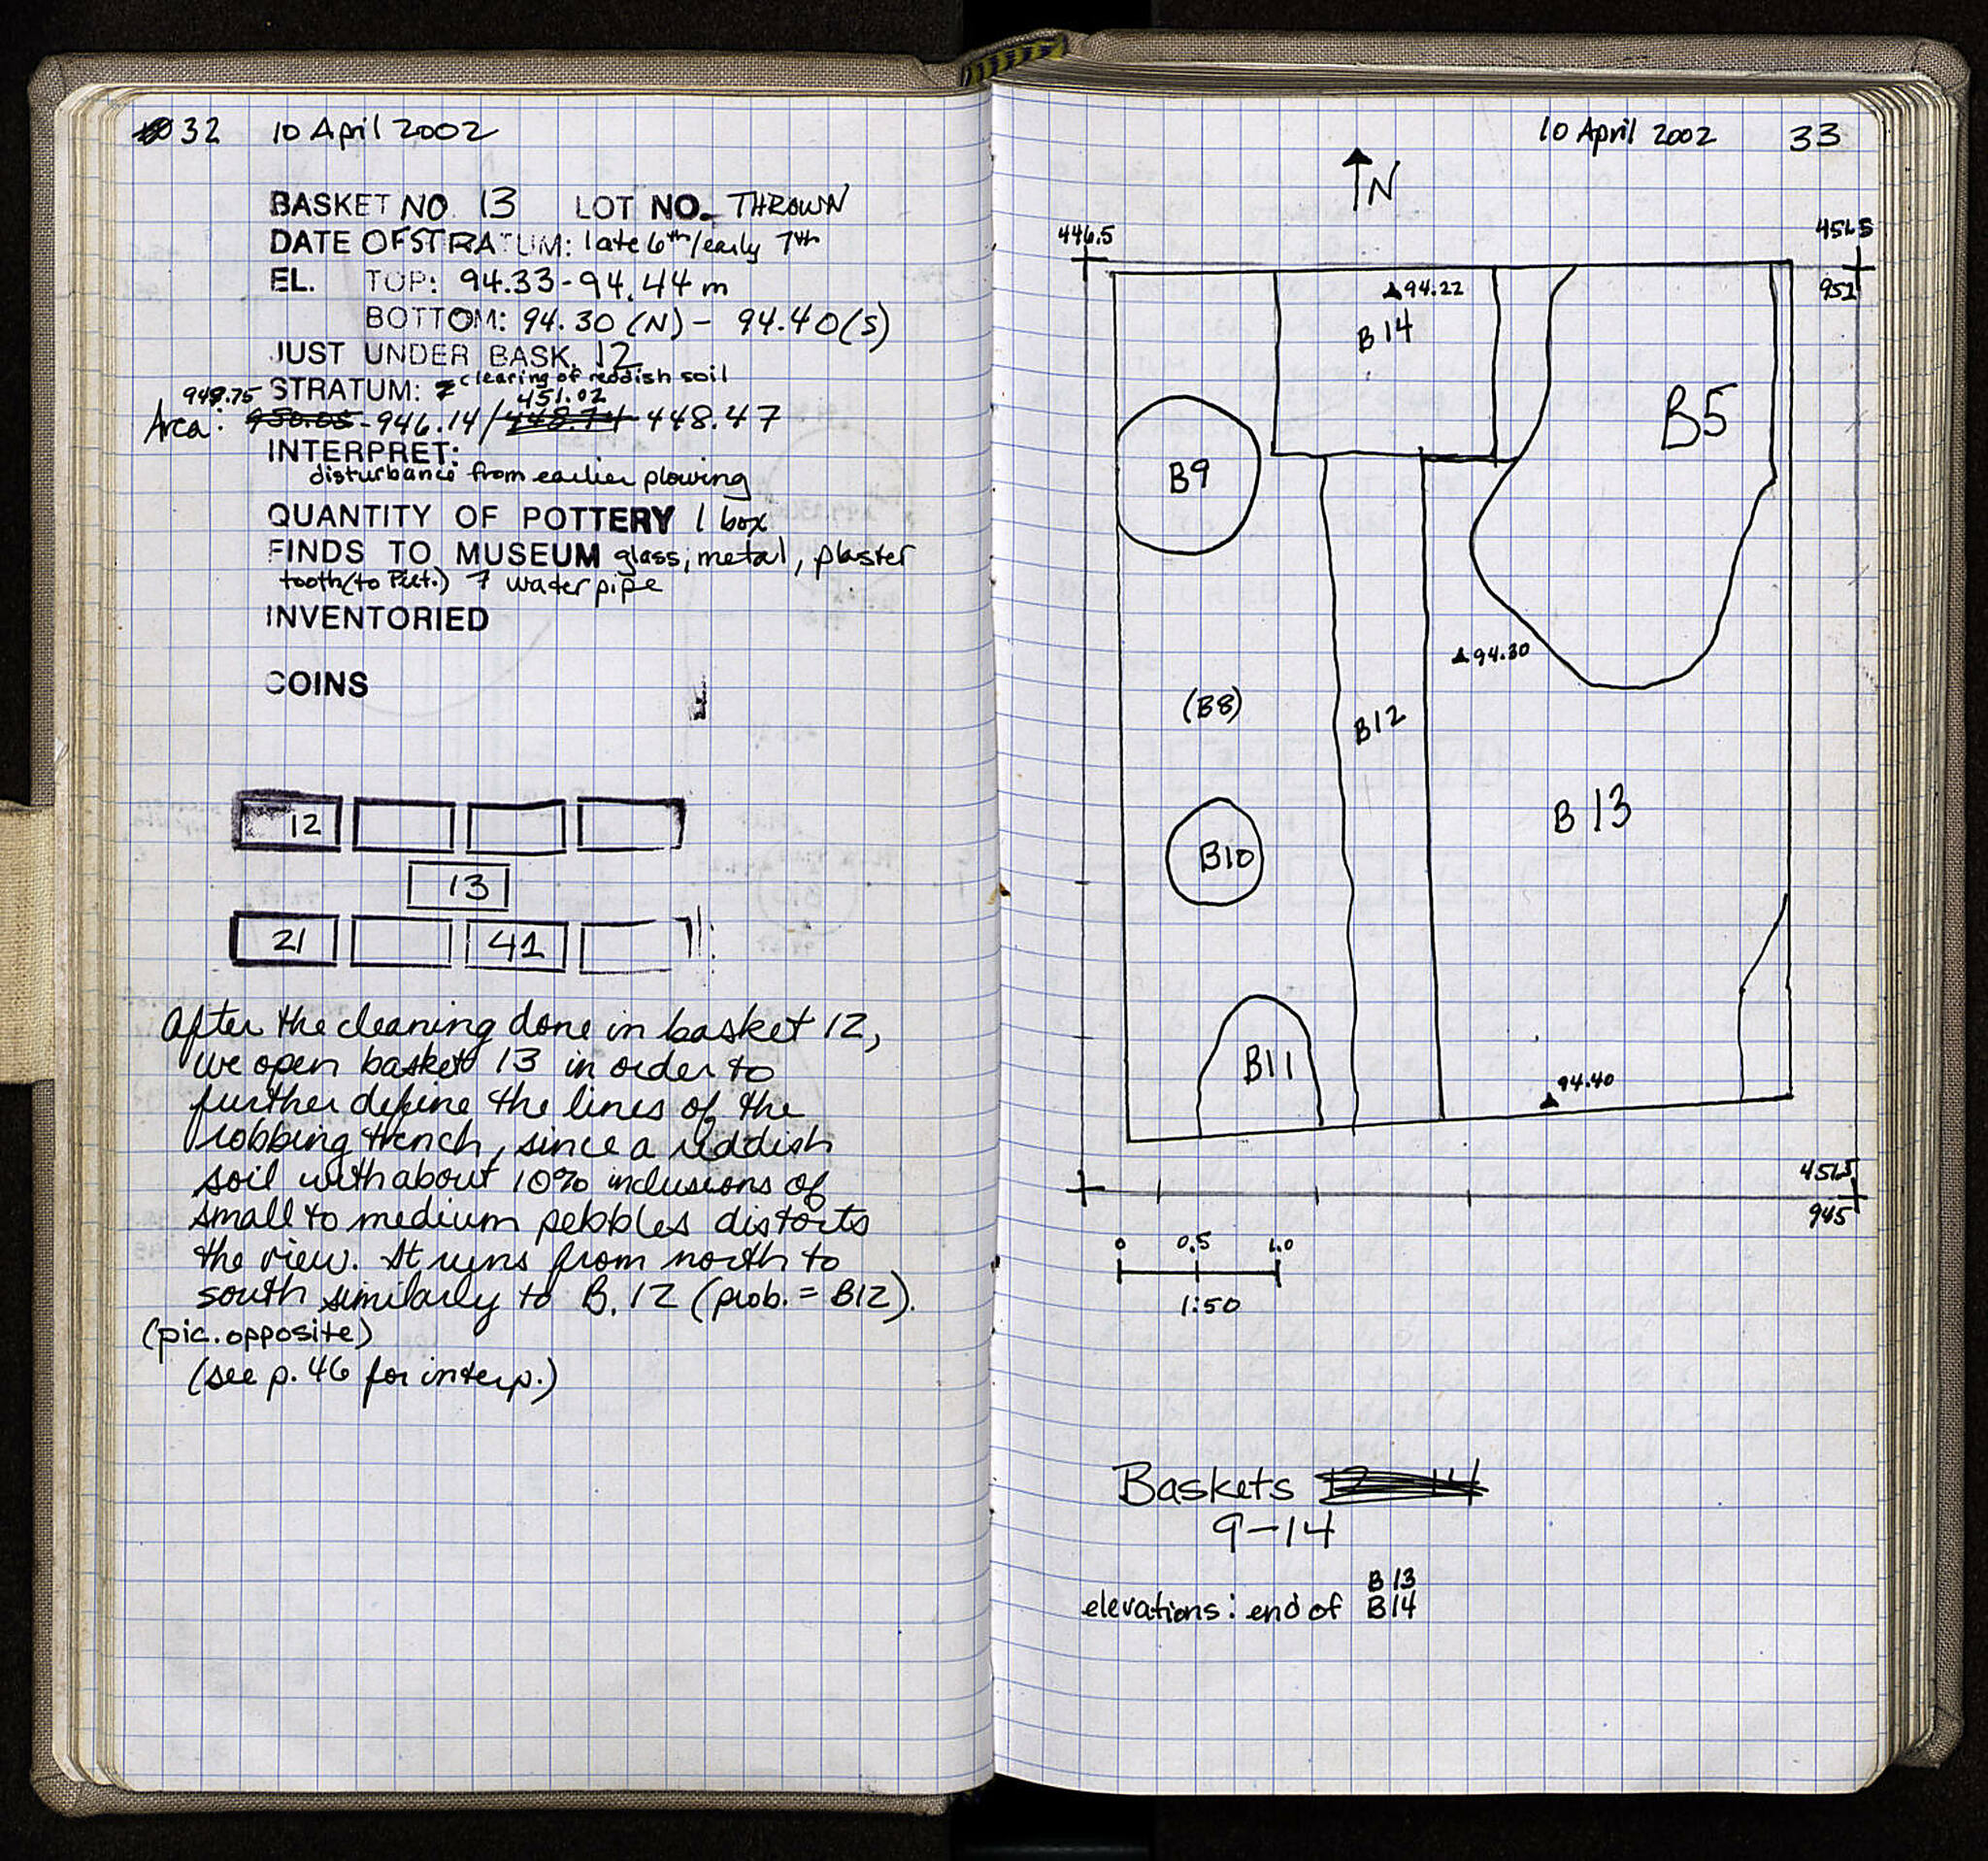 32 10 April 2002
BASKET NO. 13 LOT NO. THROWN
DATE OF STRATUM: late 6th/early 7th
EL. TOP: 94.33-94.44 m
BOTTOM: 94.30 (N) - 94.40 (S)
JUST UNDER BASK. 12
STRATUM: clearing of reddish soil
948.75 451.02
Area: 950.05-946.14/448.74 448.47
INTERPRET:
disturbance from earlier plowing
QUANTITY OF POTTERY 1 box
FINDS TO MUSEUM glass, metal, plaster
tooth (to Piet.) 7 water pipe
INVENTORIED
COINS
12
13
21 41
After the cleaning done in basket 12,
we open basket 13 in order to
further define the lines of the
robbing trench, since a reddish
soil with about 10% inclusions of
small to medium pebbles distorts
the view. It runs from north to
south similarly to B. 12 (prob. = B12).
(pic. opposite)
(see p. 46 for interp.)
10 April 2002 33
N
446.5 451.5
952
94.22
B14
B5
B9
94.30
(B8)
B12
B13
B10
B11
94.40
451.5
945
0 0.5 1.0
1:50
Baskets
9-14
B13
elevations: end of B14